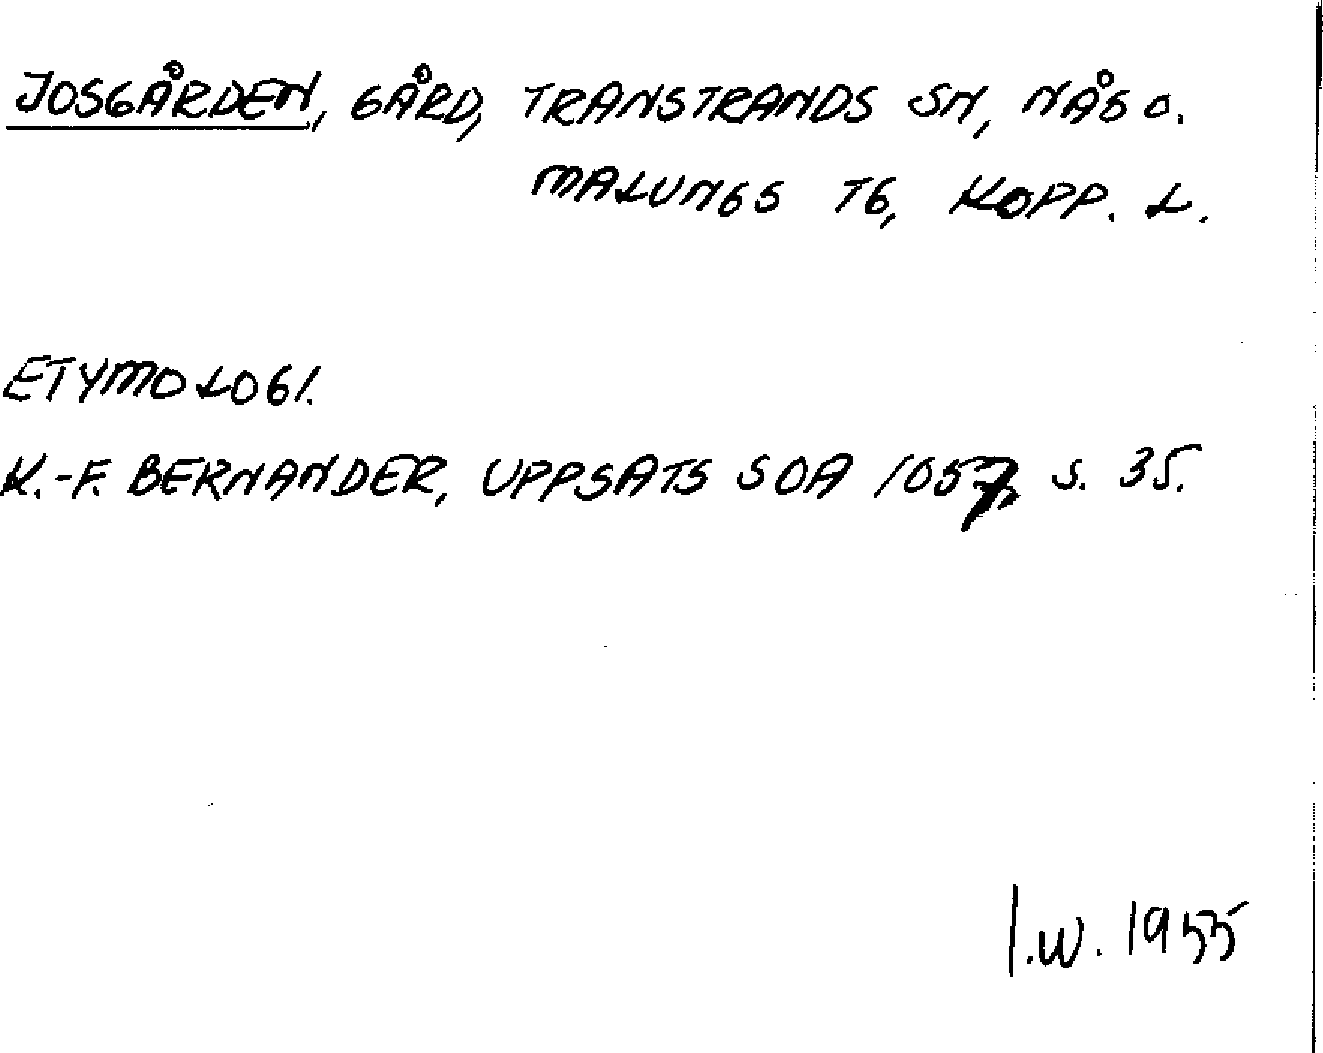 JOSGÅRDEN, GÅRD, TRANSTRANDS SN, NÅS O.
MALUNGS TG, KOPP. L.
ETYMOLOGI.
K.-F. BERNANDER, UPPSATS SOA 1057, S. 35.
I.W. 1955